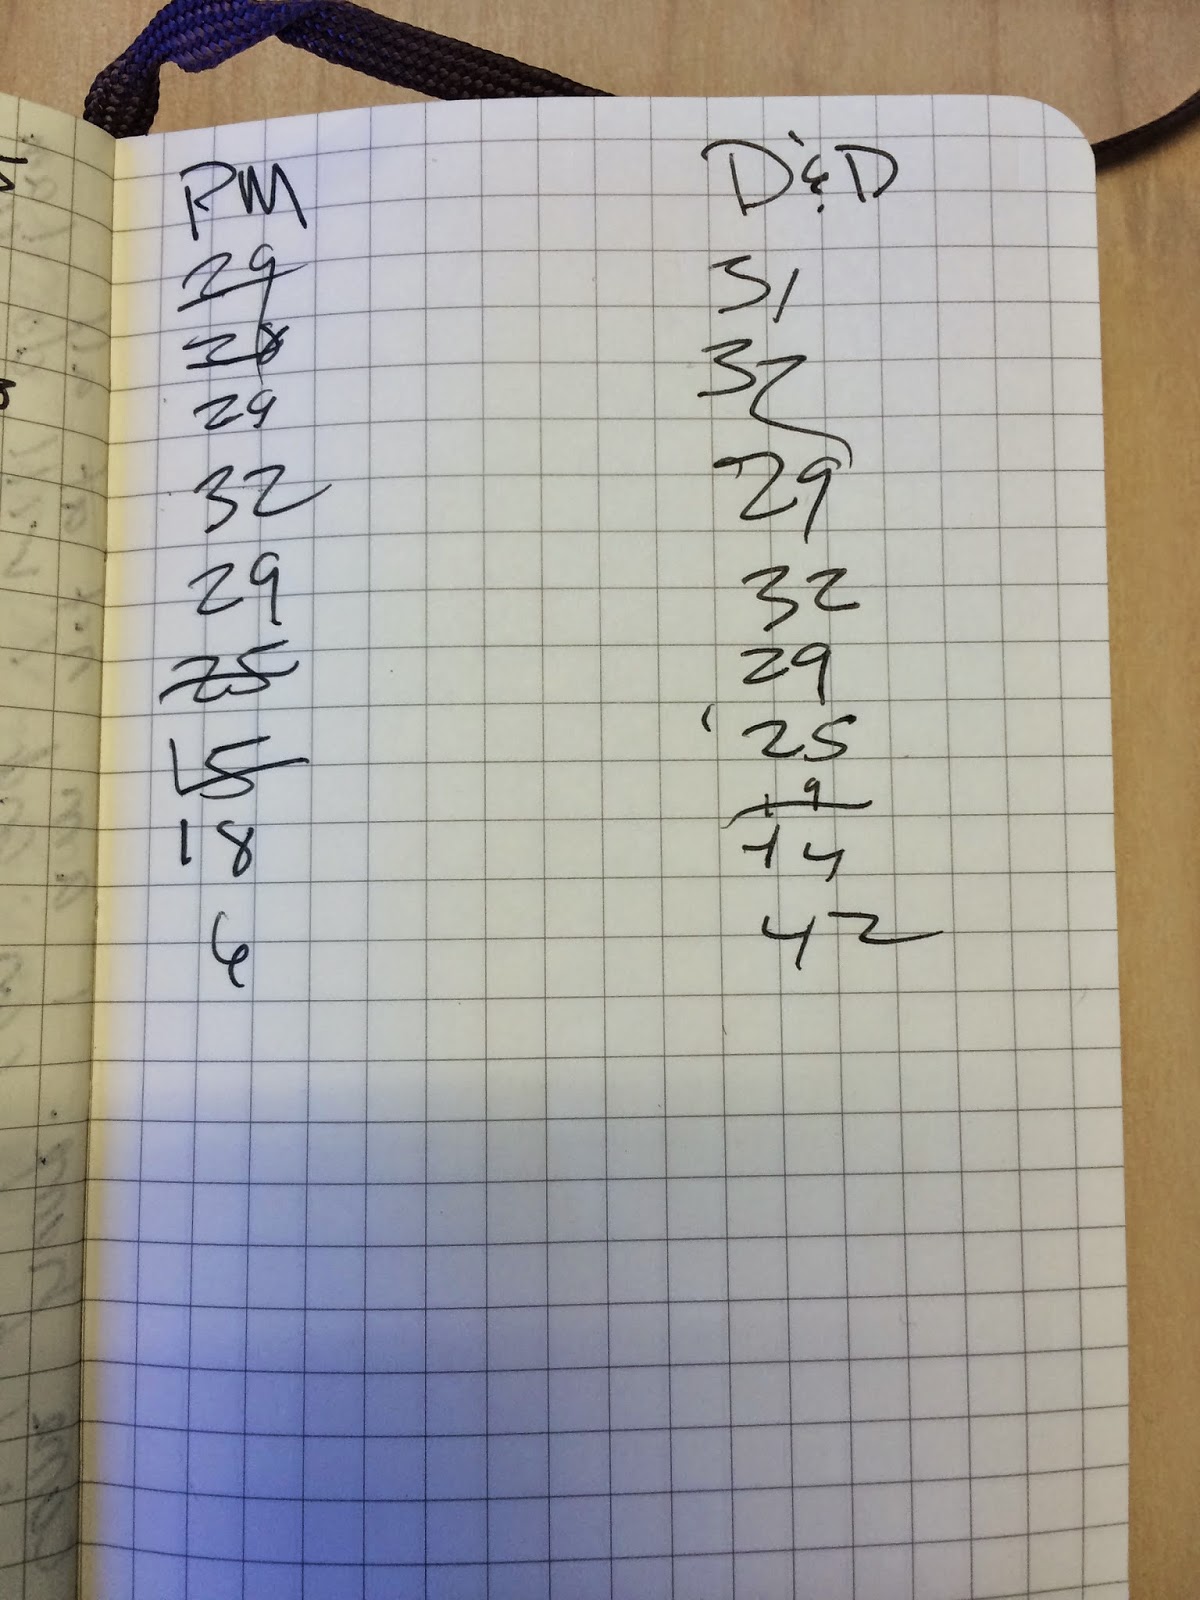 RM D&D
29 31
28 32
29 29
32 32
29 29
25 25
15 19
18 14
6 42